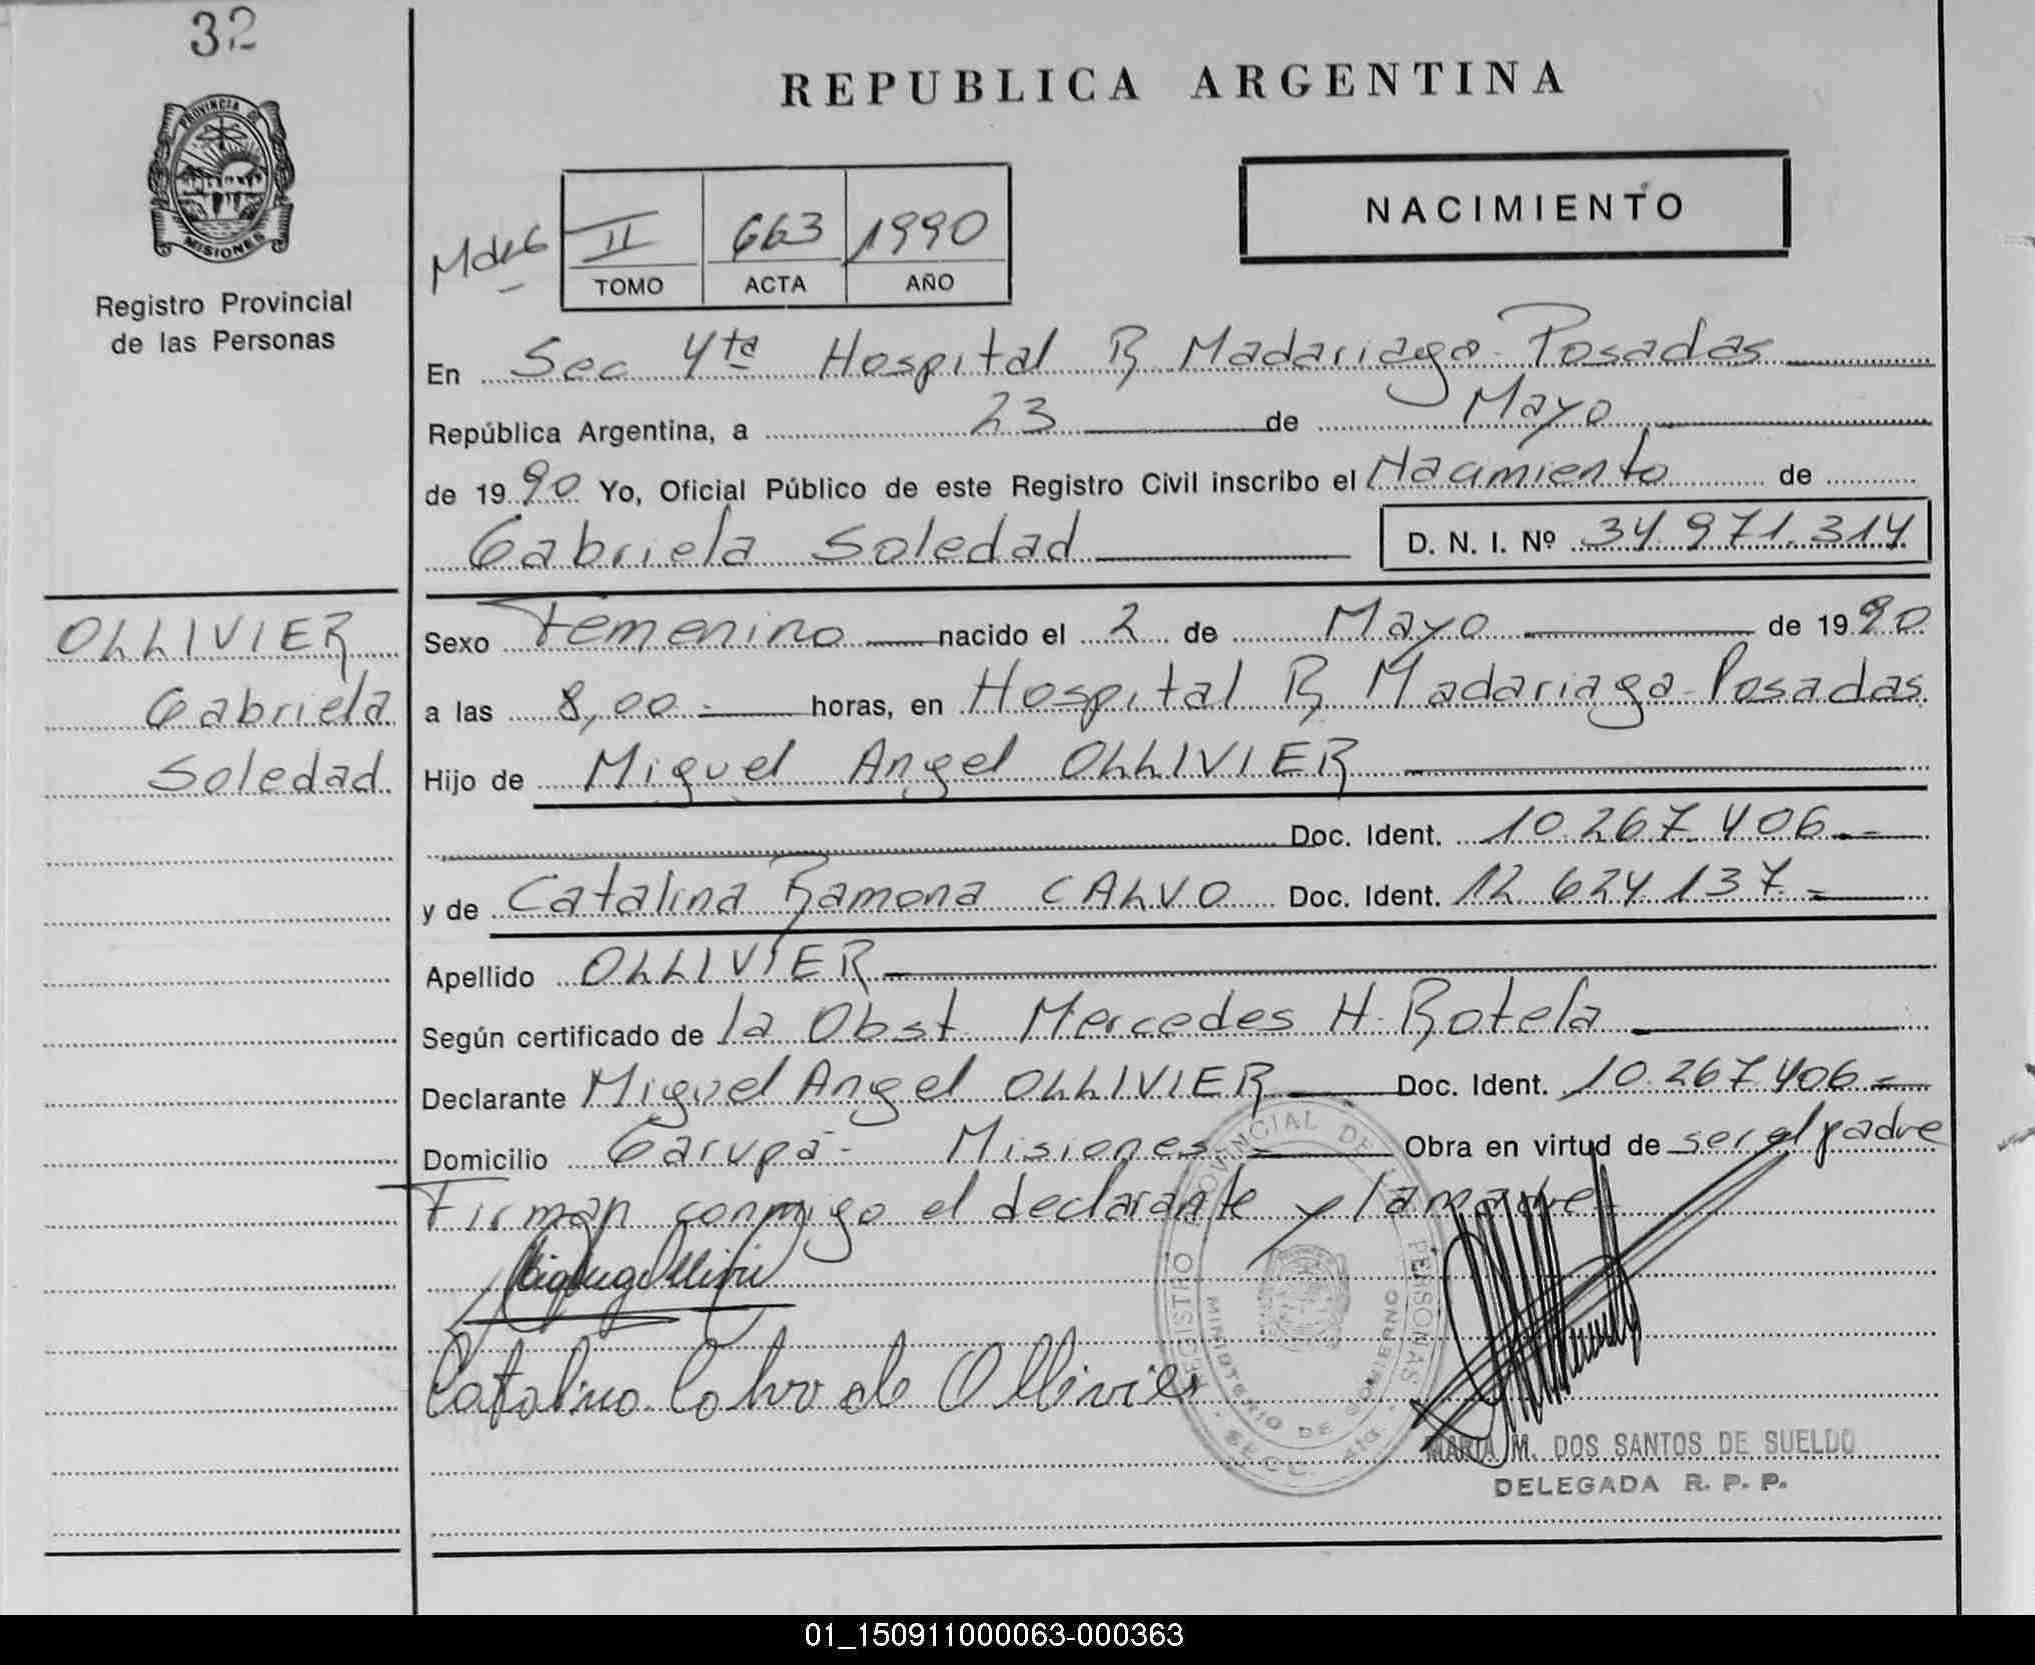 32
PROVINCIA DE
MISIONES
Registro Provincial
de las Personas
REPUBLICA ARGENTINA
NACIMIENTO
II 663 1990
TOMO ACTA AÑO
En Sec 4ta Hospital R Madariaga - Posadas
República Argentina, a 23 de Mayo
de 1990 Yo, Oficial Público de este Registro Civil inscribo el Nacimiento de
Gabriela Soledad D. N. I. Nº 34.971.314
OLLIVIER
Gabriela
Soledad
Sexo Femenino nacido el 2 de Mayo de 1990
a las 8,00.- horas, en Hospital R Madariaga - Posadas
Hijo de Miguel Angel OLLIVIER
Doc. Ident. 10.267.406.-
y de Catalina Ramona CALVO Doc. Ident. 12.624.137.-
Apellido OLLIVIER
Según certificado de la Obst. Mercedes H. Rotela
Declarante Miguel Angel OLLIVIER Doc. Ident. 10.267.406.-
Domicilio Garupá - Misiones.- Obra en virtud de ser el padre
Firman conmigo el declarante y la madre
Catalina Calvo de Ollivier
REGISTRO PROVINCIAL DE LAS PERSONAS
MINISTERIO DE GOBIERNO
MARIA M. DOS SANTOS DE SUELDO
DELEGADA R. P. P.
01_150911000063-000363